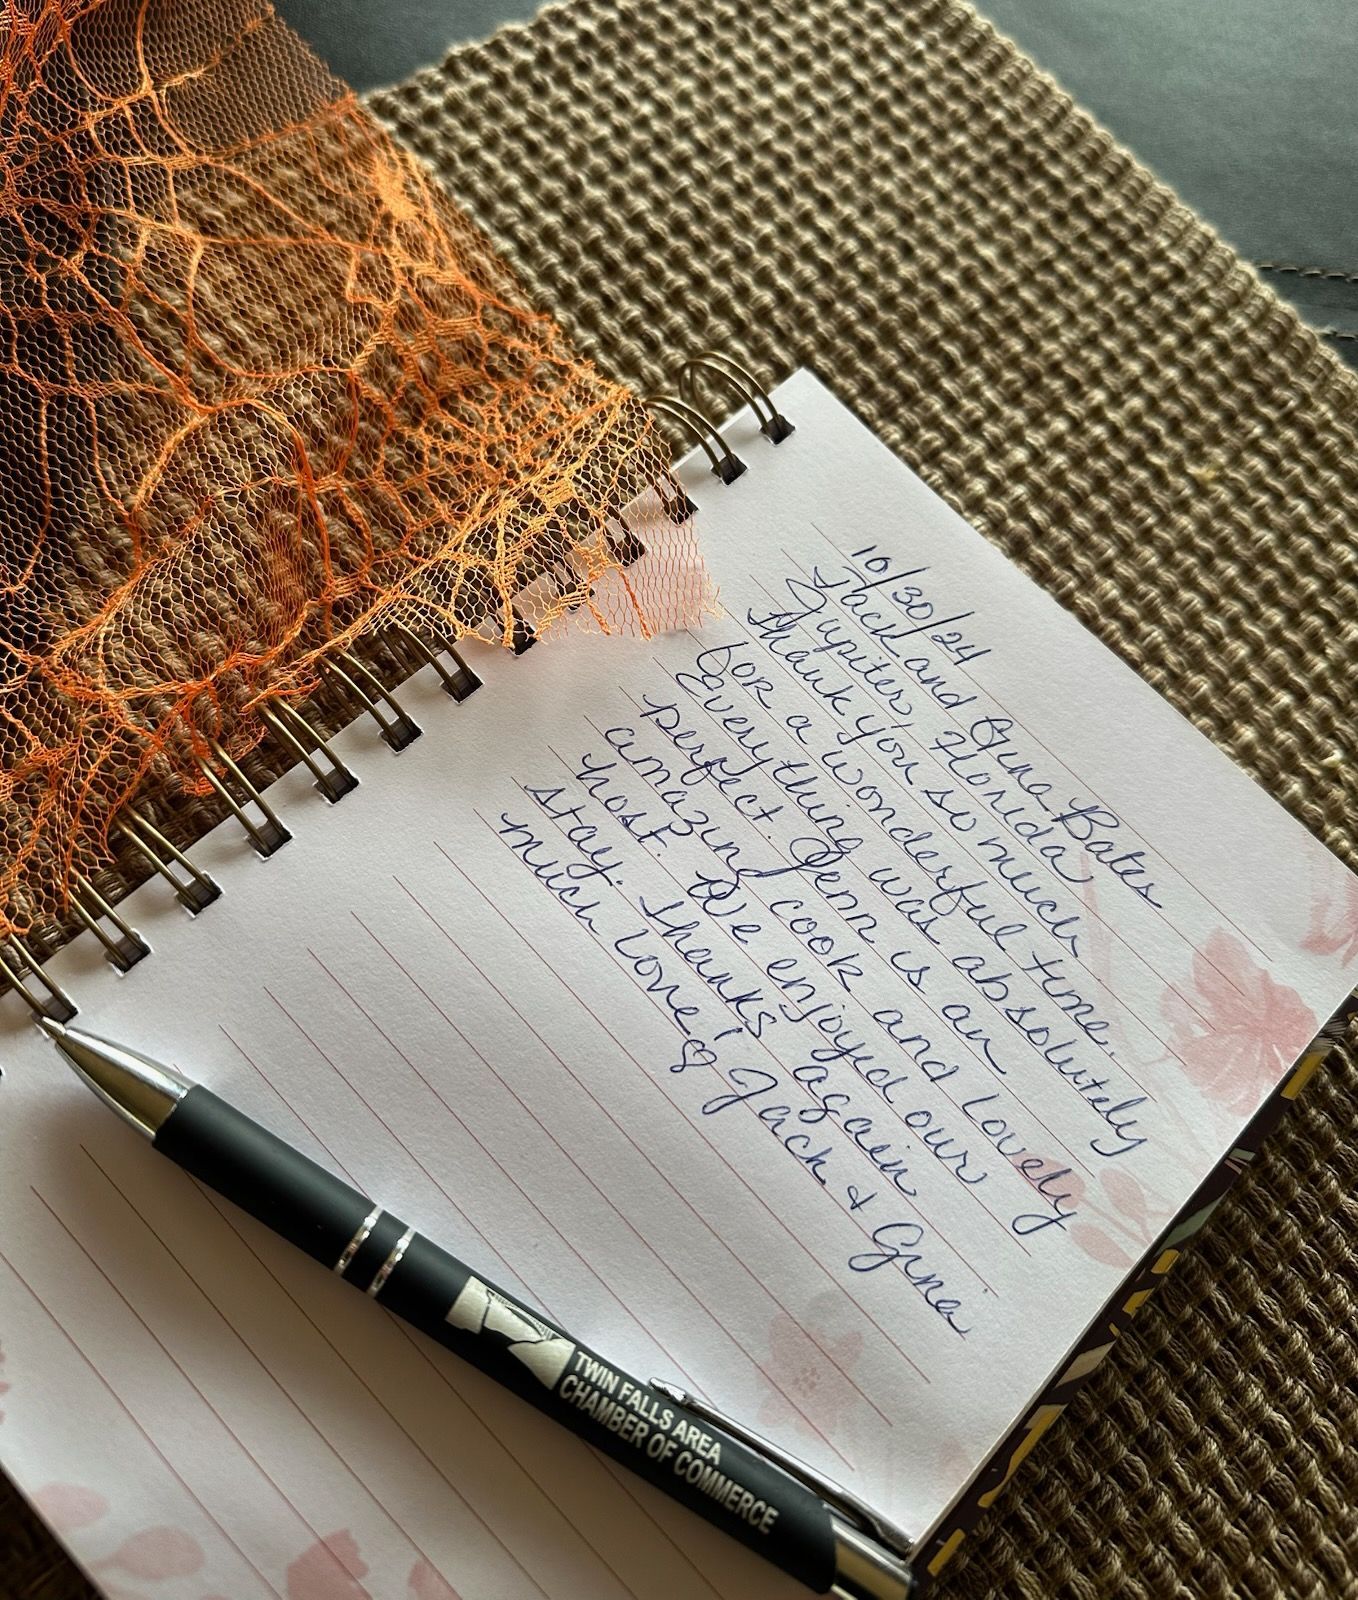 10/30/24
Jack and Gina Bates
Jupiter, Florida
Thank you so much
for a wonderful time.
Everything was absolutely
perfect. Jenn is an
amazing cook and lovely
host. We enjoyed our
stay. Thanks again
much love! Jack & Gina
TWIN FALLS AREA
CHAMBER OF COMMERCE